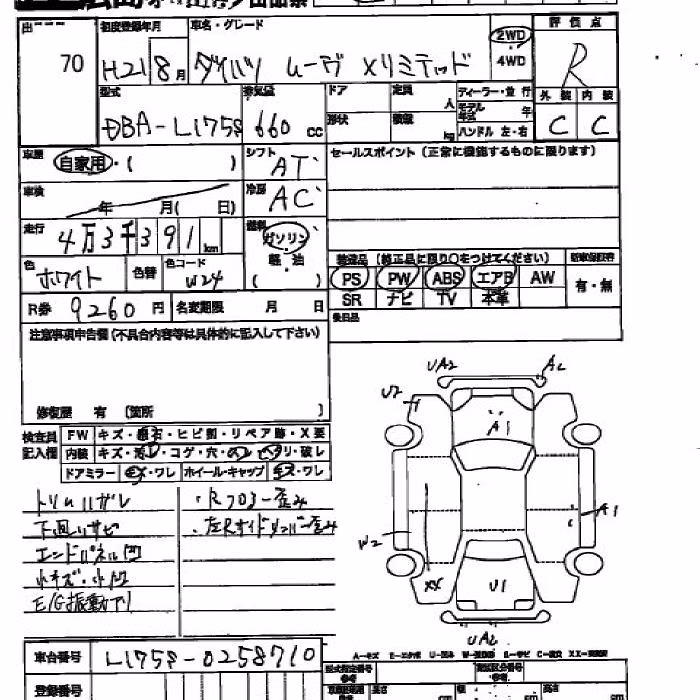 出
70
初度登録年月
H21 8月
車名・グレード
ダイハツ ムーヴ Xリミテッド
2WD
4WD
評価点
R
外装 内装
C C
型式
DBA-L175S
排気量
660 cc
ドア
定員
人
形状
積載
kg
ディーラー・並行
モデル年式 年
ハンドル 左・右
車歴
自家用・( )
シフト
AT
セールスポイント(正常に機能するものに限ります)
車検
年 月( 日)
冷房
AC
走行
4万3千391km
燃料
ガソリン
軽・油
( )
色
ホワイト
色替
色コード
W24
装備品(純正品に限り○をつけてください)
PS PW ABS エアB AW
SR ナビ TV 本革
有・無
R券 9260円
名変期限 月 日
後日品
注意事項申告欄(不具合内容等は具体的に記入して下さい)
修復歴 有 〔箇所 〕
検査員記入欄
FW キズ・飛石・ヒビ割・リペア跡・X要
内装 キズ・汚レ・コゲ・穴・ヘリ・破レ
ドアミラー キズ・ワレ ホイール・キャップ キズ・ワレ
トリムハガレ
下回りサビ
エンドパネル凹
小キズ・小凹
E/G振動アリ
・Rフロアー歪み
・左Rサイドメンバー歪み
UA2
A2
U2
A1
A1
W2
XX
U1
UA2
車台番号 L175S-0258710
登録番号
A-キズ
型式指定番号
長さ cm 幅 cm 高さ cm